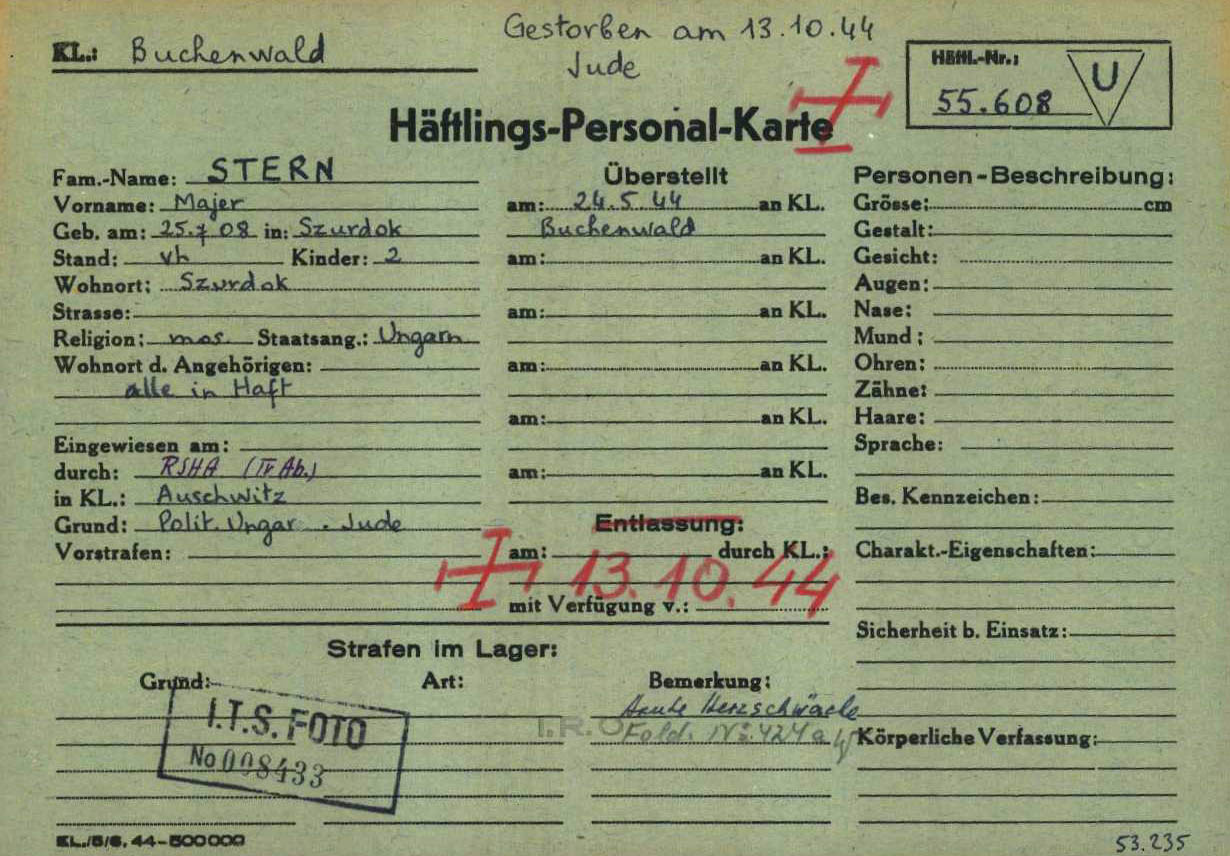 Gestorben am 13.10.44
KL.: Buchenwald
Jude
Häftl.-Nr.:
U
55.608
Häftlings-Personal-Karte
Fam.-Name: STERN
Vorname: Majer
Geb. am: 25.7 08 in: Szurdok
Stand: vh Kinder: 2
Wohnort: Szurdok
Strasse:
Religion: mos. Staatsang.: Ungarn
Wohnort d. Angehörigen:
alle in Haft
Eingewiesen am:
durch: RSHA (IV Ab.)
in KL.: Auschwitz
Grund: Polit. Ungar. Jude
Vorstrafen:
Überstellt
am: 24.5 44 an KL.
Buchenwald
am: an KL.
am: an KL.
am: an KL.
am: an KL.
am: an KL.
Entlassung:
am: durch KL.:
13.10.44
mit Verfügung v.:
Personen-Beschreibung:
Grösse: cm
Gestalt:
Gesicht:
Augen:
Nase:
Mund:
Ohren:
Zähne:
Haare:
Sprache:
Bes. Kennzeichen:
Charakt.-Eigenschaften:
Sicherheit b. Einsatz:
Körperliche Verfassung:
Strafen im Lager:
Grund: Art: Bemerkung:
Akute Herzschwäche
I.R.O.
I.T.S. FOTO
No 008433
KL./5/6. 44-500000
53.235